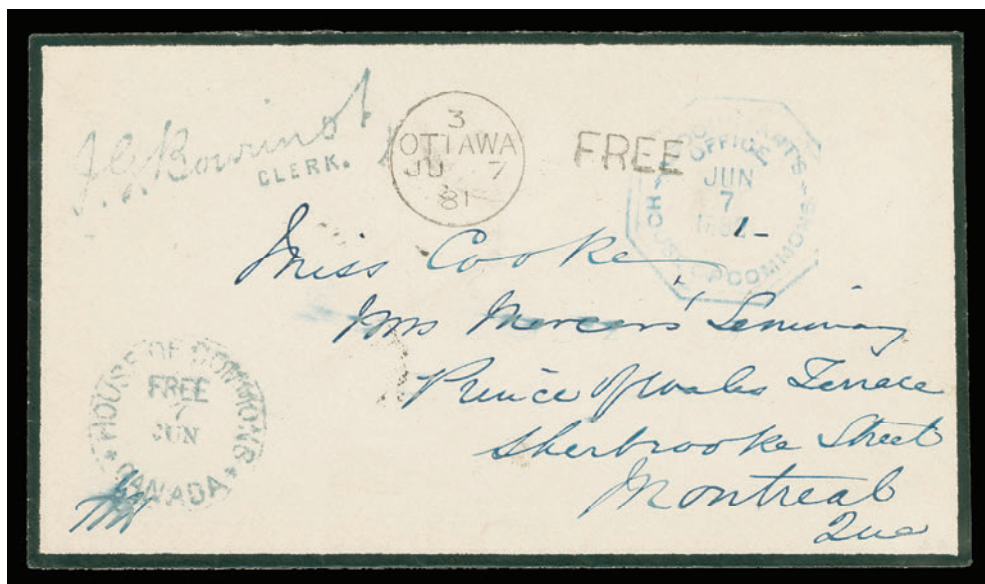 J.G. Bourinot
CLERK.
3
OTTAWA
JU 7
81
FREE
OFFICE
JUN
7
HOUSE OF COMMONS
Miss Cooke
Mrs Mercers' Seminary
Prince of Wales Terrace
Sherbrooke Street
Montreal
Que
HOUSE OF COMMONS
FREE
7
JUN
CANADA